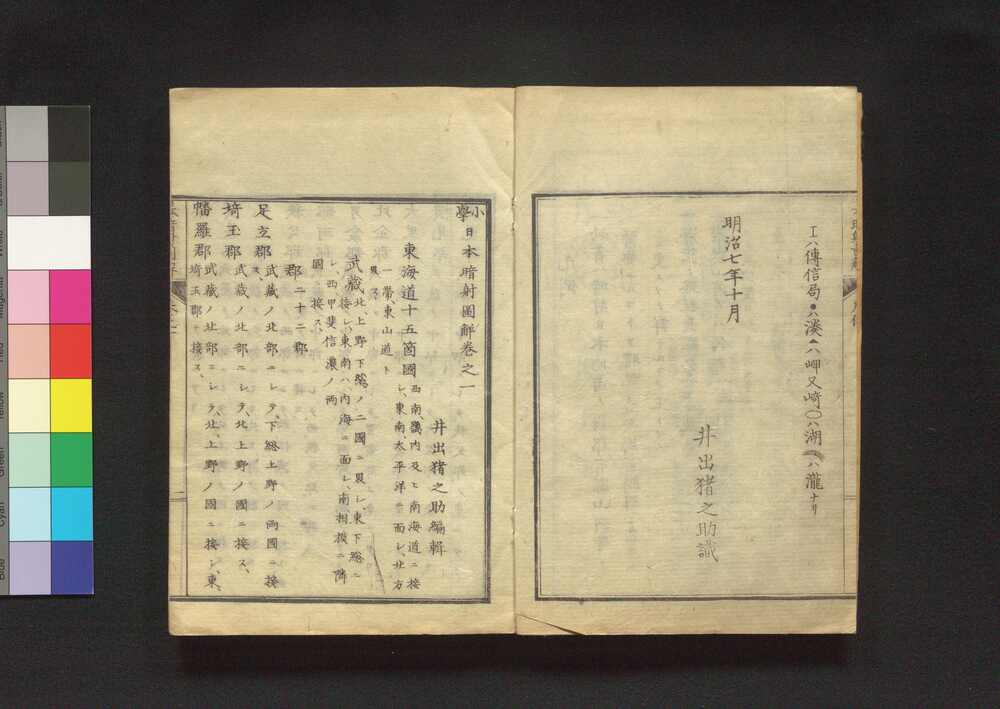 エハ傳信局●ハ湊▲ハ岬又崎〇ハ湖 ハ瀧ナリ
明治七年十月
井出猪之助識
小學日本暗射圖解卷之一
井出猪之助編輯
東海道十五箇國西南、畿内及ヒ南海道ニ接
シ、東南、太平洋ニ面シ、北方
一帶、東山道ト
界ス、
武藏北上野下
ノ二國ニ界シ東下總ニ
接シ、東南ハ内海ニ面シ、南相模ニ隣
シ、西甲斐信濃ノ兩
國ニ接ス、
郡二十二郡
足立郡武藏ノ北部ニシテ、下總上野ノ兩國ニ接
ス、
埼玉郡武藏ノ北部ニシテ、北上野ノ國ニ接ス、
幡羅郡武藏ノ北部ニシテ、北、上野ノ國ニ接シ、東、
埼玉郡ニ接ス、